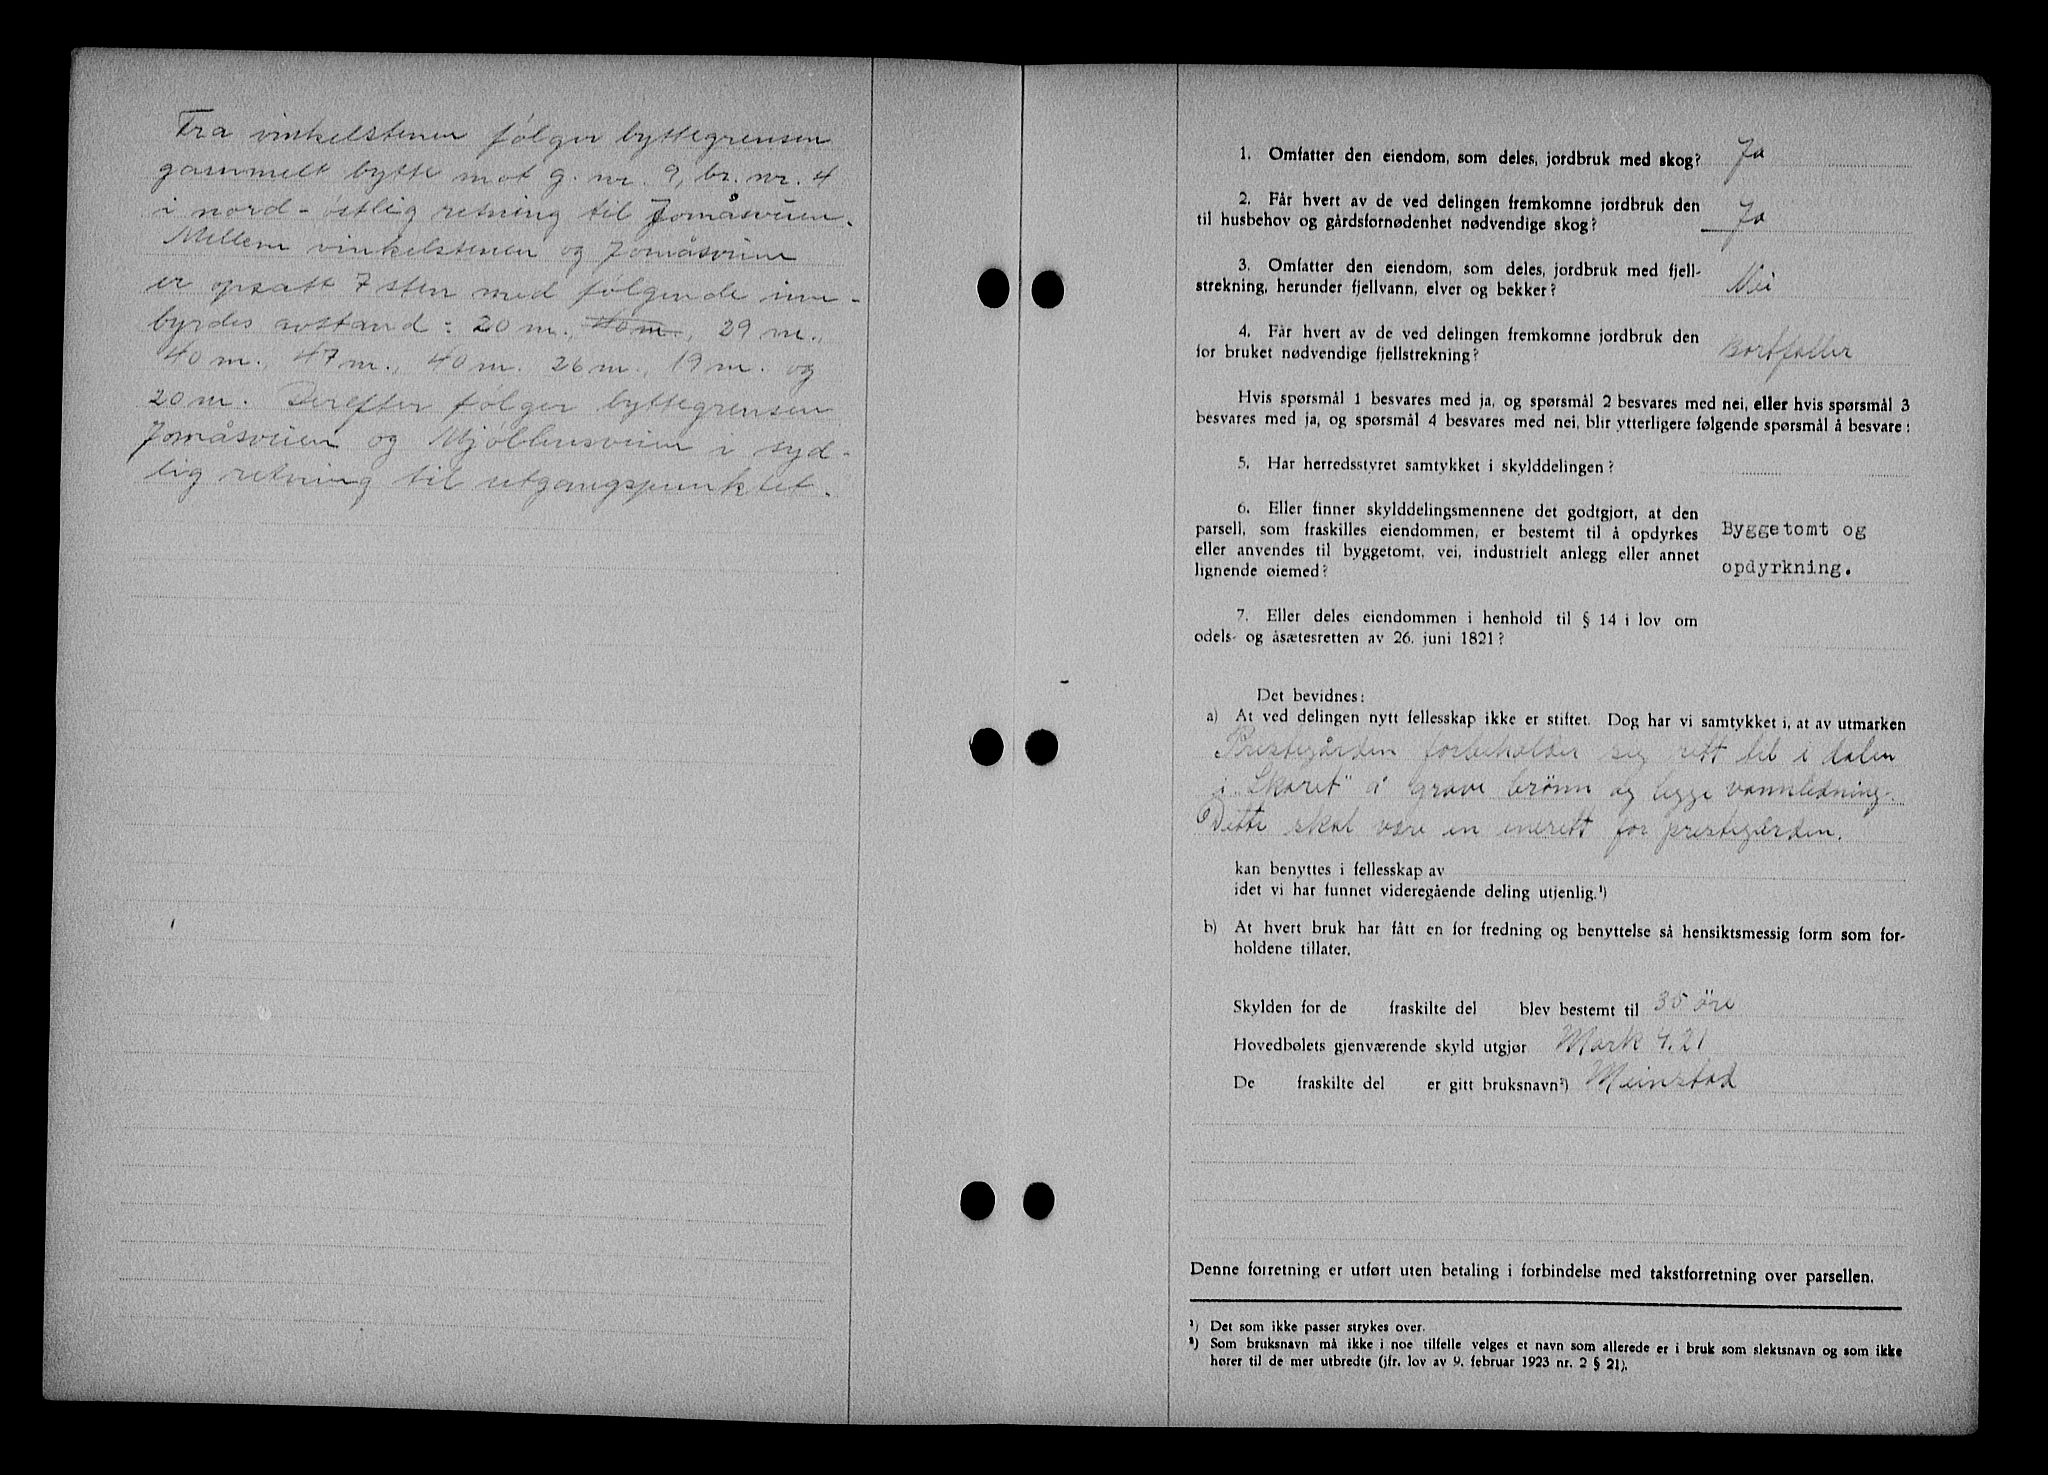 Fra vinkelstenen følger byttegrensen
gammelt bytte mot g. nr. 9, br. nr. 4
i nord-østlig retning til Jomåsveien.
Mellem vinkelstenen og Jomåsveien
er opsatt 7 sten med følgende inn-
byrdes avstand: 20 m., 40 m., 29 m.,
40 m., 47 m., 40 m. 26 m., 19 m. og
20 m. Derefter følger byttegrensen
Jomåsveien og Mjøllensveien i syd-
lig retning til utgangspunktet.
1. Omfatter den eiendom, som deles, jordbruk med skog? Ja
2. Får hvert av de ved delingen fremkomne jordbruk den
til husbehov og gårdsfornødenhet nødvendige skog? Ja
3. Omfatter den eiendom, som deles, jordbruk med fjell-
strekning, herunder fjellvann, elver og bekker? Nei
4. Får hvert av de ved delingen fremkomne jordbruk den
for bruket nødvendige fjellstrekning? Bortfaller
Hvis spørsmål 1 besvares med ja, og spørsmål 2 besvares med nei, eller hvis spørsmål 3
besvares med ja, og spørsmål 4 besvares med nei, blir ytterligere følgende spørsmål å besvare:
5. Har herredsstyret samtykket i skylddelingen?
6. Eller finner skylddelingsmennene det godtgjort, at den
parsell, som fraskilles eiendommen, er bestemt til å opdyrkes Byggetomt og
eller anvendes til byggetomt, vei, industrielt anlegg eller annet
lignende øiemed? opdyrkning.
7. Eller deles eiendommen i henhold til § 14 i lov om
odels- og åsætesretten av 26. juni 1821?
Det bevidnes:
a) At ved delingen nytt fellesskap ikke er stiftet. Dog har vi samtykket i, at av utmarken
Prestegården forbeholder seg rett til i dalen
i "Skaret" å grave brønn og legge vannledning.
Dette skal være en enerett for prestegården.
kan benyttes i fellesskap av
idet vi har funnet videregående deling utjenlig.¹)
b) At hvert bruk har fått en for fredning og benyttelse så hensiktsmessig form som for-
holdene tillater.
Skylden for de fraskilte del blev bestemt til 35 øre
Hovedbølets gjenværende skyld utgjør Mark 4.21
De fraskilte del er gitt bruksnavn²) Meinstad
Denne forretning er utført uten betaling i forbindelse med takstforretning over parsellen.
¹) Det som ikke passer strykes over.
²) Som bruksnavn må ikke i noe tilfelle velges et navn som allerede er i bruk som slektsnavn og som ikke
hører til de mer utbredte (jfr. lov av 9. februar 1923 nr. 2 § 21).